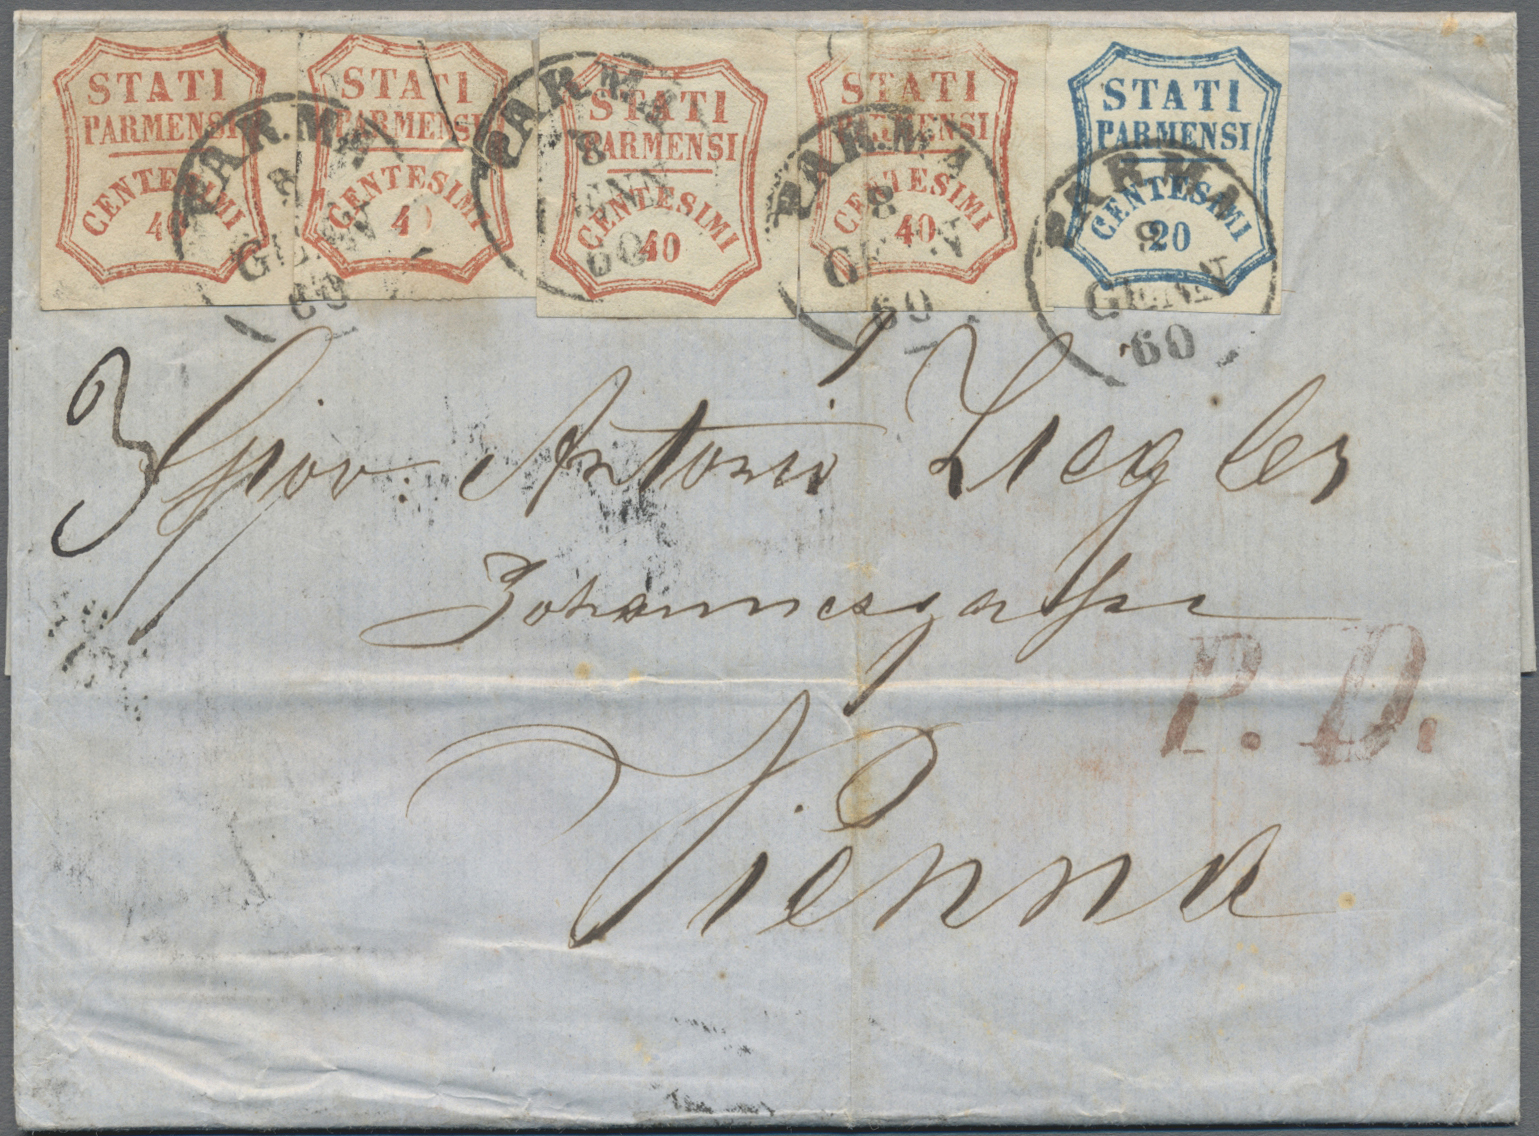 STATI PARMENSI CENTESIMI 40
STATI PARMENSI CENTESIMI 40
STATI PARMENSI CENTESIMI 40
STATI PARMENSI CENTESIMI 40
STATI PARMENSI CENTESIMI 20
PARMA 8 GENN 60
PARMA 8 GENN 60
PARMA 8 GENN 60
PARMA 8 GENN 60
3
Antonio Ziegler
Johannesgasse
P. D.
Vienna